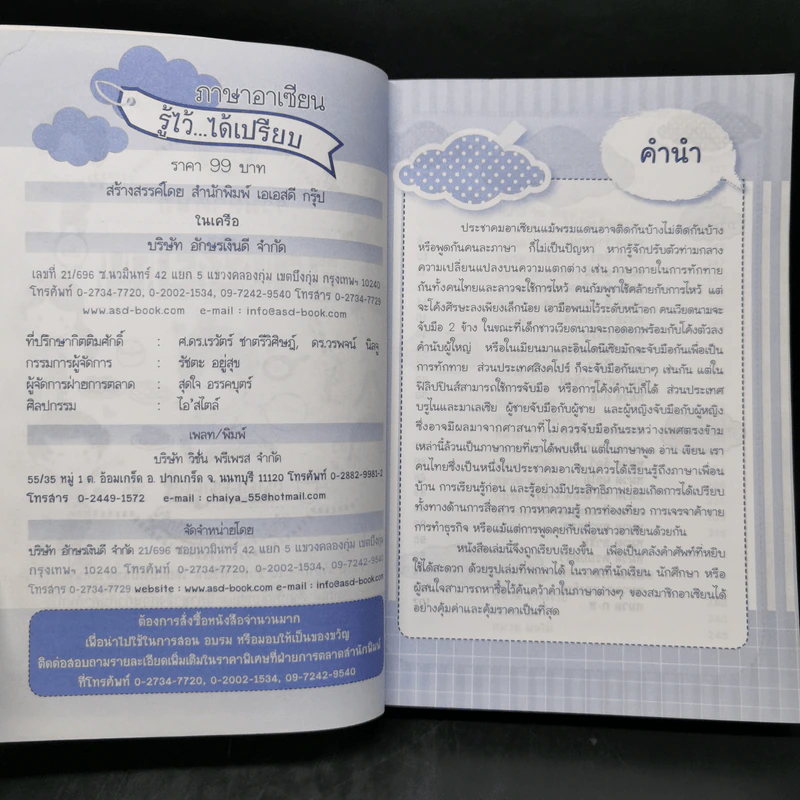 ภาษาอาเซียน
รู้ไว้...ได้เปรียบ
ราคา 99 บาท
สร้างสรรค์โดย สำนักพิมพ์ เอเอสดี กรุ๊ป
ในเครือ
บริษัท อักษรเงินดี จำกัด
เลขที่ 21/696 ซ.นวมินทร์ 42 แยก 5 แขวงคลองกุ่ม เขตบึงกุ่ม กรุงเทพฯ 10240
โทรศัพท์ 0-2734-7720, 0-2002-1534, 09-7242-9540 โทรสาร 0-2734-7729
www.asd-book.com e-mail : info@asd-book.com
ที่ปรึกษากิตติมศักดิ์ : ศ.ดร.เรวัตร์ ชาตรีวิศิษฏ์, ดร.วรพจน์ นิลจู
กรรมการผู้จัดการ : รัชตะ อยู่สุข
ผู้จัดการฝ่ายการตลาด : สุดใจ อรรคบุตร์
ศิลปกรรม : ไอ'สไตล์
เพลท/พิมพ์
บริษัท วิชั่น พรีเพรส จำกัด
55/35 หมู่ 1 ต. อ้อมเกร็ด อ. ปากเกร็ด จ. นนทบุรี 11120 โทรศัพท์ 0-2882-9981-2
โทรสาร 0-2449-1572 e-mail : chaiya_55@hotmail.com
จัดจำหน่ายโดย
บริษัท อักษรเงินดี จำกัด 21/696 ซอยนวมินทร์ 42 แยก 5 แขวงคลองกุ่ม เขตบึงกุ่ม
กรุงเทพฯ 10240 โทรศัพท์ 0-2734-7720, 0-2002-1534, 09-7242-9540
โทรสาร 0-2734-7729 website : www.asd-book.com e-mail : info@asd-book.com
ต้องการสั่งซื้อหนังสือจำนวนมาก
เพื่อนำไปใช้ในการสอน อบรม หรือมอบให้เป็นของขวัญ
ติดต่อสอบถามรายละเอียดเพิ่มเติมในราคาพิเศษที่ฝ่ายการตลาดสำนักพิมพ์
ที่โทรศัพท์ 0-2734-7720, 0-2002-1534, 09-7242-9540
คำนำ
ประชาคมอาเซียนแม้พรมแดนอาจติดกันบ้างไม่ติดกันบ้าง
หรือพูดกันคนละภาษา ก็ไม่เป็นปัญหา หากรู้จักปรับตัวท่ามกลาง
ความเปลี่ยนแปลงบนความแตกต่าง เช่น ภาษากายในการทักทาย
กันทั้งคนไทยและลาวจะใช้การไหว้ คนกัมพูชาใช้คล้ายกับการไหว้ แต่
จะโค้งศีรษะลงเพียงเล็กน้อย เอามือพนมไว้ระดับหน้าอก คนเวียดนามจะ
จับมือ 2 ข้าง ในขณะที่เด็กชาวเวียดนามจะกอดอกพร้อมกับโค้งตัวลง
คำนับผู้ใหญ่ หรือในเมียนมาและอินโดนีเซียมักจะจับมือกันเพื่อเป็น
การทักทาย ส่วนประเทศสิงคโปร์ ก็จะจับมือกันเบาๆ เช่นกัน แต่ใน
ฟิลิปปินส์สามารถใช้การจับมือ หรือการโค้งคำนับก็ได้ ส่วนประเทศ
บรูไนและมาเลเซีย ผู้ชายจับมือกับผู้ชาย และผู้หญิงจับมือกับผู้หญิง
ซึ่งอาจมีผลมาจากศาสนาที่ไม่ควรจับมือกันระหว่างเพศตรงข้าม
เหล่านี้ล้วนเป็นภาษากายที่เราได้พบเห็น แต่ในภาษาพูด อ่าน เขียน เรา
คนไทยซึ่งเป็นหนึ่งในประชาคมอาเซียนควรได้เรียนรู้ถึงภาษาเพื่อน
บ้าน การเรียนรู้ก่อน และรู้อย่างมีประสิทธิภาพย่อมเกิดการได้เปรียบ
ทั้งทางด้านการสื่อสาร การหาความรู้ การท่องเที่ยว การเจรจาค้าขาย
การทำธุรกิจ หรือแม้แต่การพูดคุยกับเพื่อนชาวอาเซียนด้วยกัน
หนังสือเล่มนี้จึงถูกเรียบเรียงขึ้น เพื่อเป็นคลังคำศัพท์ที่หยิบ
ใช้ได้สะดวก ด้วยรูปเล่มที่พกพาได้ ในราคาที่นักเรียน นักศึกษา หรือ
ผู้สนใจสามารถหาซื้อไว้ค้นคว้าคำในภาษาต่างๆ ของสมาชิกอาเซียนได้
อย่างคุ้มค่าและคุ้มราคาเป็นที่สุด